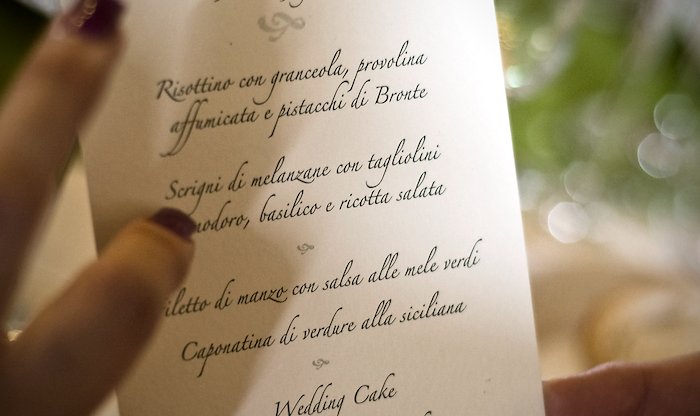 Risottino con granceola, provolina
affumicata e pistacchi di Bronte
Scrigni di melanzane con tagliolini
modoro, basilico e ricotta salata
iletto di manzo con salsa alle mele verdi
Caponatina di verdure alla siciliana
Wedding Cake